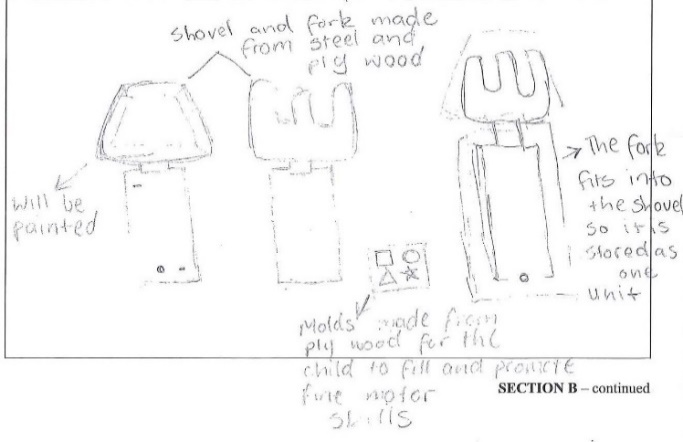 Shovel and fork made
from steel and
ply wood
will be
painted
The fork
fits into
the shovel
so it is
stored as
one
unit
Molds made from
ply wood for the
child to fill and promote
fine motor
skills
SECTION B – continued